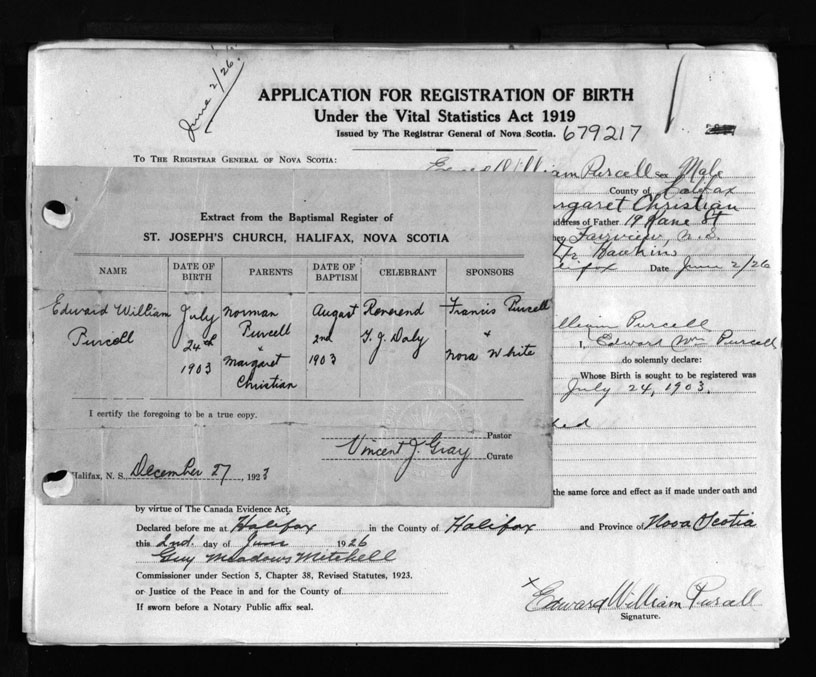 June 2/26.
APPLICATION FOR REGISTRATION OF BIRTH
Under the Vital Statistics Act 1919
Issued by The Registrar General of Nova Scotia. 679217
TO THE REGISTRAR GENERAL OF NOVA SCOTIA:
William Purcell sex Male
County of Halifax
Margaret Christian
address of Father 19 Kane St
Fairview, N.S.
Hawkins
Halifax Date June 2/26
William Purcell
I, Edward Wm Purcell
do solemnly declare:
Whose Birth is sought to be registered was
July 24, 1903.
the same force and effect as if made under oath and
by virtue of The Canada Evidence Act.
Declared before me at Halifax in the County of Halifax and Province of Nova Scotia
this 2nd. day of June 1926
Guy Meadows Mitchell
Commissioner under Section 5, Chapter 38, Revised Statutes, 1923.
or Justice of the Peace in and for the County of
If sworn before a Notary Public affix seal.
x Edward William Purcell
Signature.
Extract from the Baptismal Register of
ST. JOSEPH'S CHURCH, HALIFAX, NOVA SCOTIA
NAME DATE OF BIRTH PARENTS DATE OF BAPTISM CELEBRANT SPONSORS
Edward William July Norman August Reverend Francis Purcell
Purcell 24th Purcell 2nd T. J. Daly &
1903 & Margaret 1903 Nora White
Christian
I certify the foregoing to be a true copy.
Pastor
Vincent J. Gray Curate
Halifax, N. S., December 27, 1923